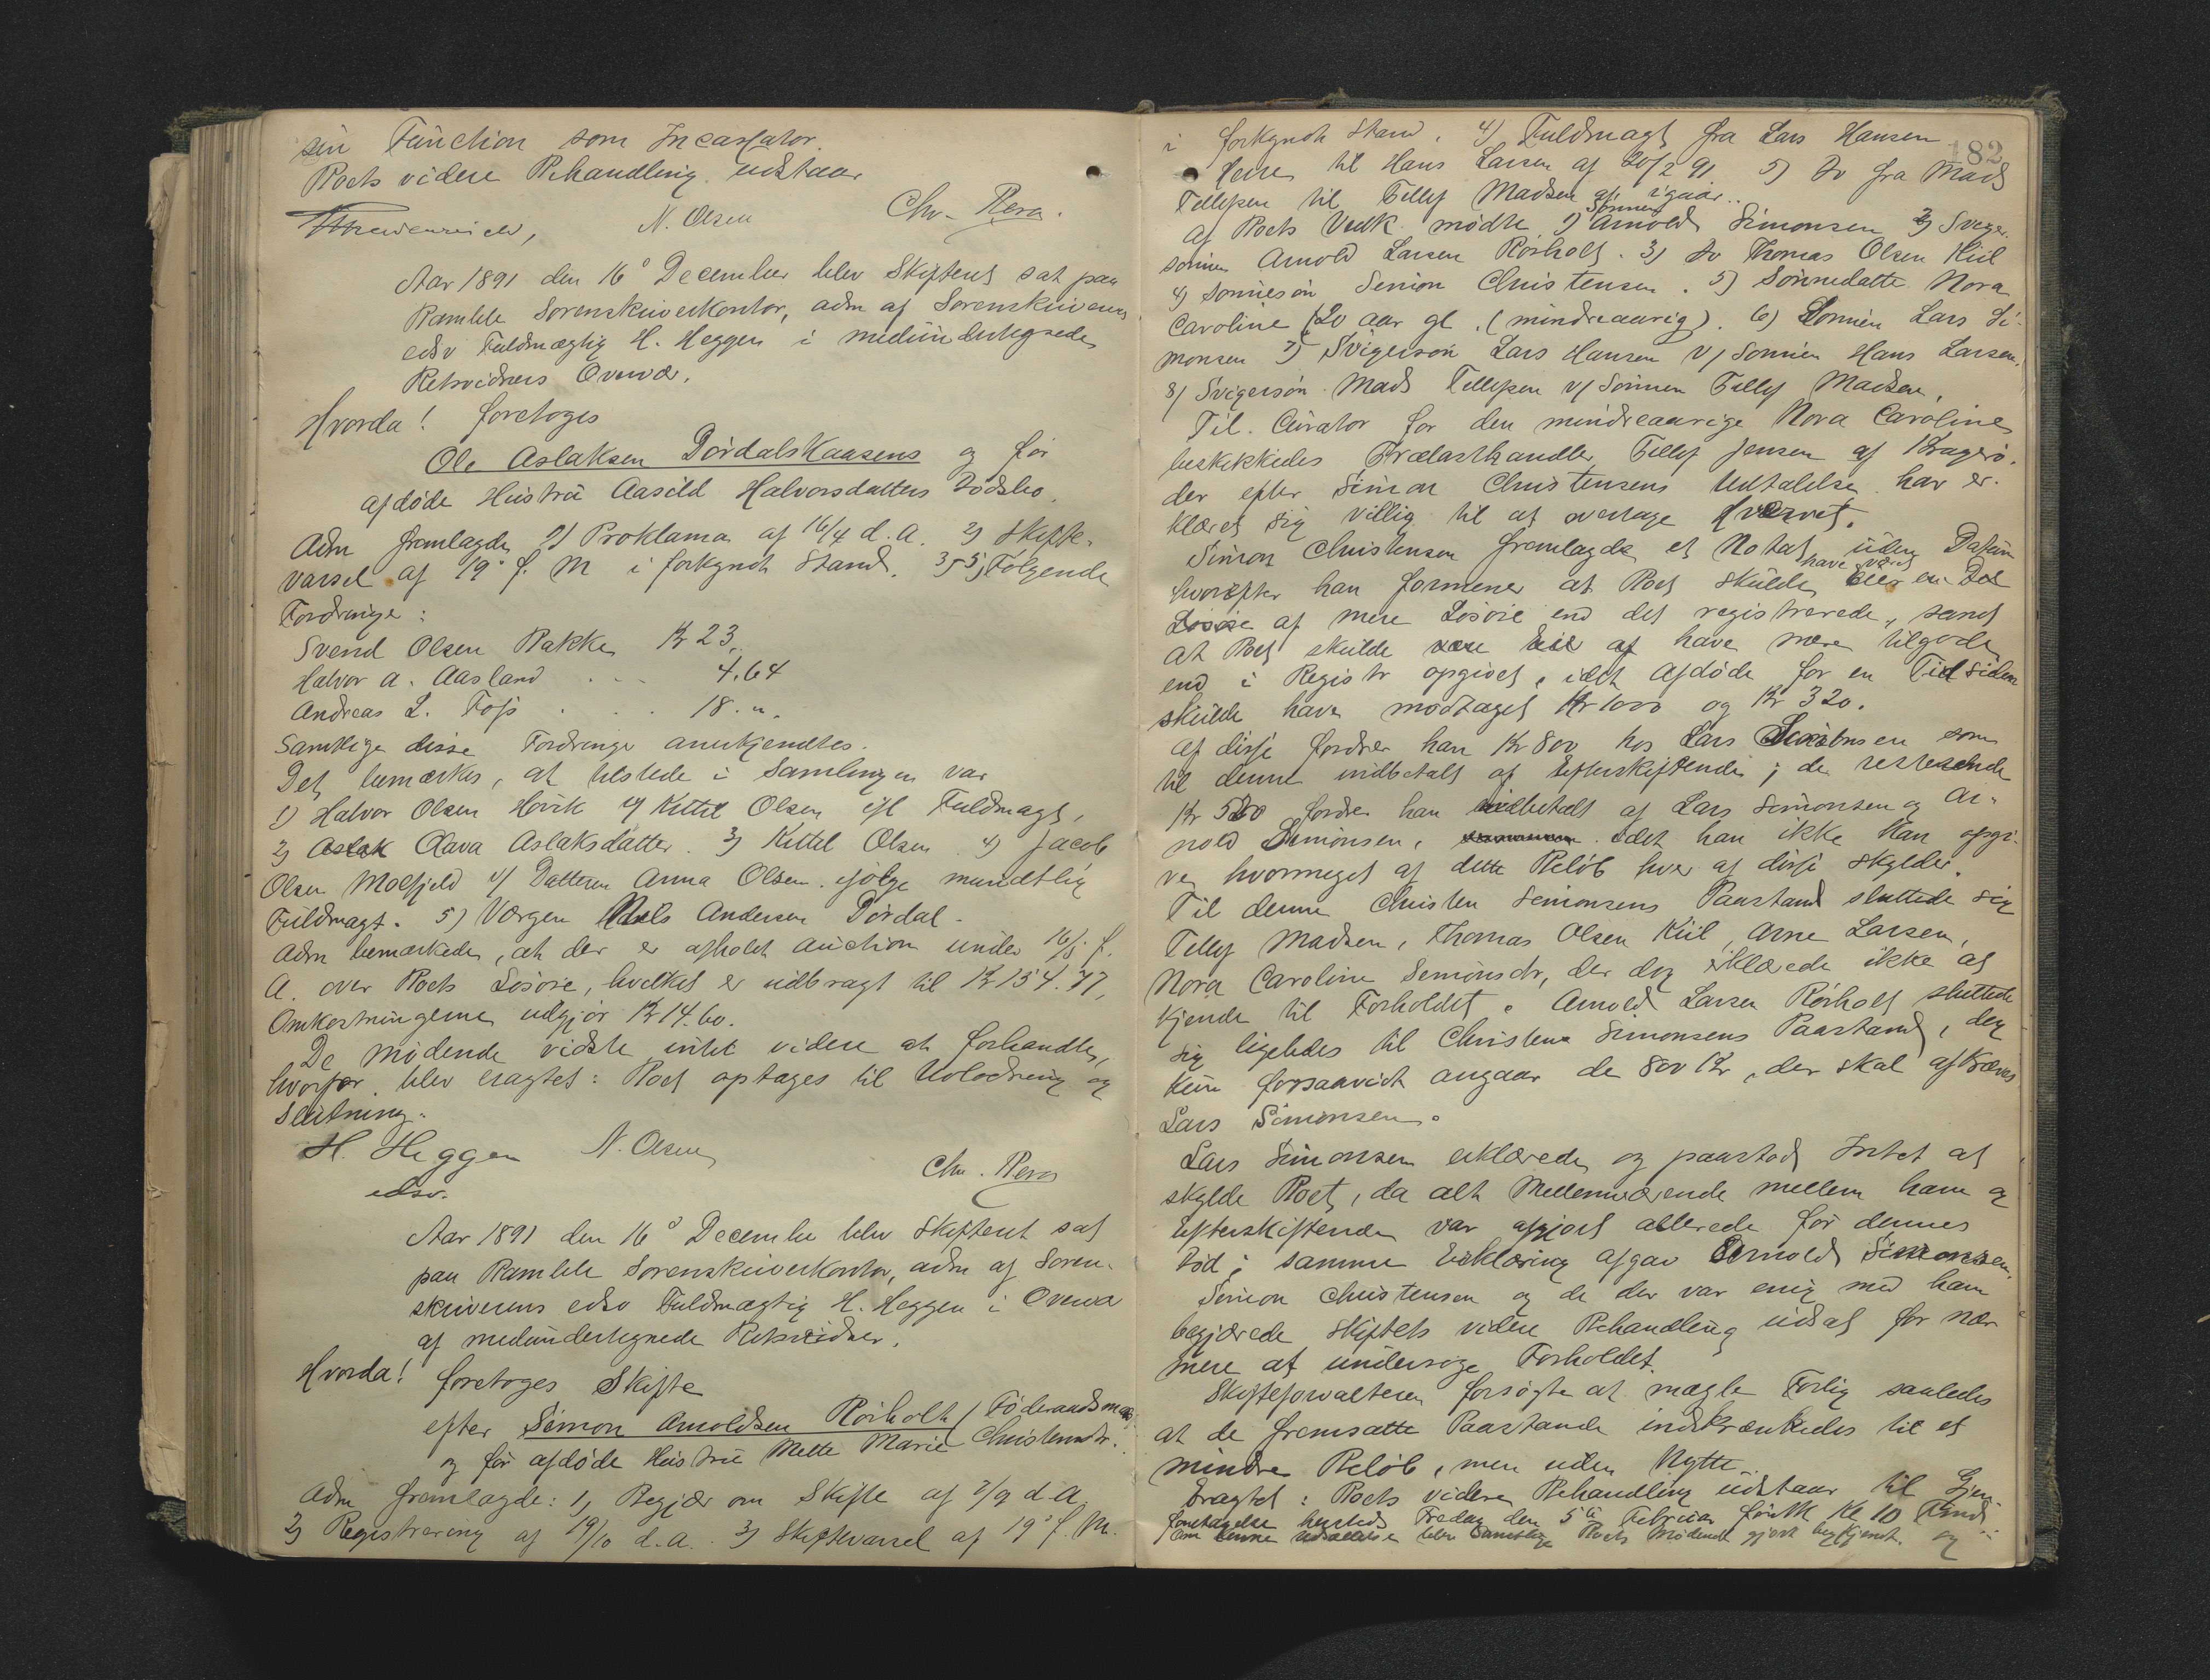 sin Function som Incassator.
Boets videre Behandling udstaar
N. Olsen Chr. Rera.
Aar 1891 den 16de December blev Skifteret sat paa
Bamble Sorenskriverkontor, adm af Sorenskriverens
edsv Fuldmægtig H. Heggen i medundertegnede
Retsvidners Overvær.
Hvorda! foretoges
Ole Aslaksen Dørdalskaasens og før
afdøde Hustru Aasild Halvorsdatters Dødsbo.
Adm fremlagde 1) Proklama af 16/4 d. A. 2) Skifte-
varsel af 19de f. M i forkyndt Stand. 3-5) Følgende
Fordringer:
Svend Olsen Bakke Kr 23,
Halvor A. Aasland . . . 4,64
Andreas L. Foss . . . 18. ".
Samtlige disse Fordringer anerkjendtes.
Det bemærkes, at tilstede i Samlingen var
1) Halvor Olsen Hövik v/ Kittil Olsen ifl Fuldmagt,
2) Aslak Aava Aslaksdatter. 3) Kittil Olsen 4) Jacob
Olsen Molfjeld v/ Datteren Anna Olsen ifølge mundtlig
Fuldmagt. 5) Værgen Niels Andersen Dørdal.
Adm bemærkede, at der er afholdt Auction under 16/5 f.
A. over Boets Løsøre, hvilket er udbragt til Kr 154.47,
Omkostningerne udgjør Kr 14.60.
De mødende vidste intet videre at forhandle,
hvorfor blev eragtet: Boet optages til Udlodning og
Slutning.
H. Heggen N. Olsen
edsv. Chr. Rera
Aar 1891 den 16de December blev Skifteret sat
paa Bamble Sorenskriverkontor, adm af Soren-
skriverens edsv Fuldmægtig H. Heggen i Overvær
af medundertegnede Retsvidner.
Hvorda! foretoges Skifte
efter Simon Arnoldsen Rørholt (Føderaadsmand)
og før afdøde Hustru Mette Marie Christensdtr.
Adm fremlagde: 1) Begjær om Skifte af 7/9 d. A
2) Registrering af 19/10 d. A. 3) Skiftevarsel af 19de f. M.
182
i forkyndt Stand. 4) Fuldmagt fra Lars Hansen
til Hans Larsen af 20/2 91 5) Do fra Mads
Tellefsen til Tellef Madsen af igaar.
Af Boets Vedk. mødte 1) Sønnen Arnold Simonsen 2) Sviger-
sønnen Arnold Larsen Rørholt. 3) Do Thomas Olsen Kiil
4) Sønnesøn Simon Christensen. 5) Sønnedatter Nora
Caroline (20 aar gl. (mindreaarig). 6) Sønnen Lars Si-
monsen 7) Svigersøn Lars Hansen v/ Sønnen Hans Larsen.
8) Svigersøn Mads Tellefsen v/ Sønnen Tellef Madsen,
Til Curator for den mindreaarige Nora Caroline
beskikkedes Trælasthandler Tellef Jensen af Kragerø.
der efter Simon Christensens Udtalelse har er-
klæret sig villig til at overtage Hvervet.
Simon Christensen fremlagde et Notat uden Datum
hvorefter han formener at Boet skulde have været Eier en Del
Løsøre af mere Løsøre end det registrerede, samt
at Boet skulde være Eier af have mere tilgode
end i Registr opgivet, idet Afdøde for en Tid siden
skulde have modtaget Kr 1000 og Kr 320.
Af disse fordrer han Kr 800 hos Lars Simonsen som
til denne indbetalt af Efterskiftende; de resterende
Kr 520 fordrer han indbetalt af Lars Simonsen og Ar-
nold Simonsen, idet han ikke kan opgi-
ve hvormeget af dette Beløb hver af disse skylder.
Til denne Christen Simonsens Paastand sluttede sig
Tellef Madsen, Thomas Olsen Kiil, Arne Larsen,
Nora Caroline Simonsdr, der dog erklærede ikke at
kjende til Forholdet. Arnold Larsen Rørholt sluttede
sig ligeledes til Christen Simonsens Paastand, dog
kun forsaavidt angaar de 800 Kr, der skal afkræves
Lars Simonsen.
Lars Simonsen erklærede og paastod Intet at
skylde Boet, da alt Mellemværende mellem ham og
Efterskiftende var afgjort allerede før dennes
Død; samme Erklæring afgav Arnold Simonsen.
Simon Christensen og de der var enig med ham
begjærede Skiftets videre Behandling udsat for nær-
mere at undersøge Forholdet.
Skifteforvalteren forsøgte at mægle Forlig saaledes
at de fremsatte Paastande indskrænkedes til et
mindre Beløb, men uden Nytte.
Eragtet: Boets videre Behandling udstaar til Gjen-
foretagelse hersteds Fredag den 5te Februar førstk Kl 10 Fmd.
Om denne Udsættelse blev samtlige Boets Mødende gjort bekjendt. og